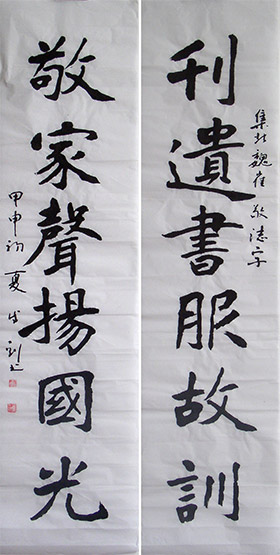 刊遺書服故訓
集北魏崔敬邕字
敬家聲揚國光
甲申初夏